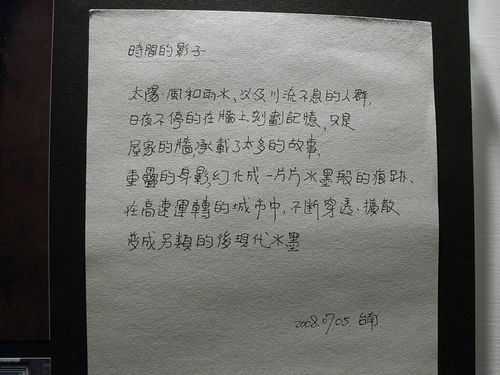 時間的影子
太陽、風和雨水,以及川流不息的人群,
日夜不停的在牆上刻劃記憶,只是
屋家的牆,承載了太多的故事,
重疊的身影,幻化成一片片水墨般的痕跡、
在高速運轉的城市中,不斷穿透、擴散
變成另類的後現代水墨
2008.07.05. 台南